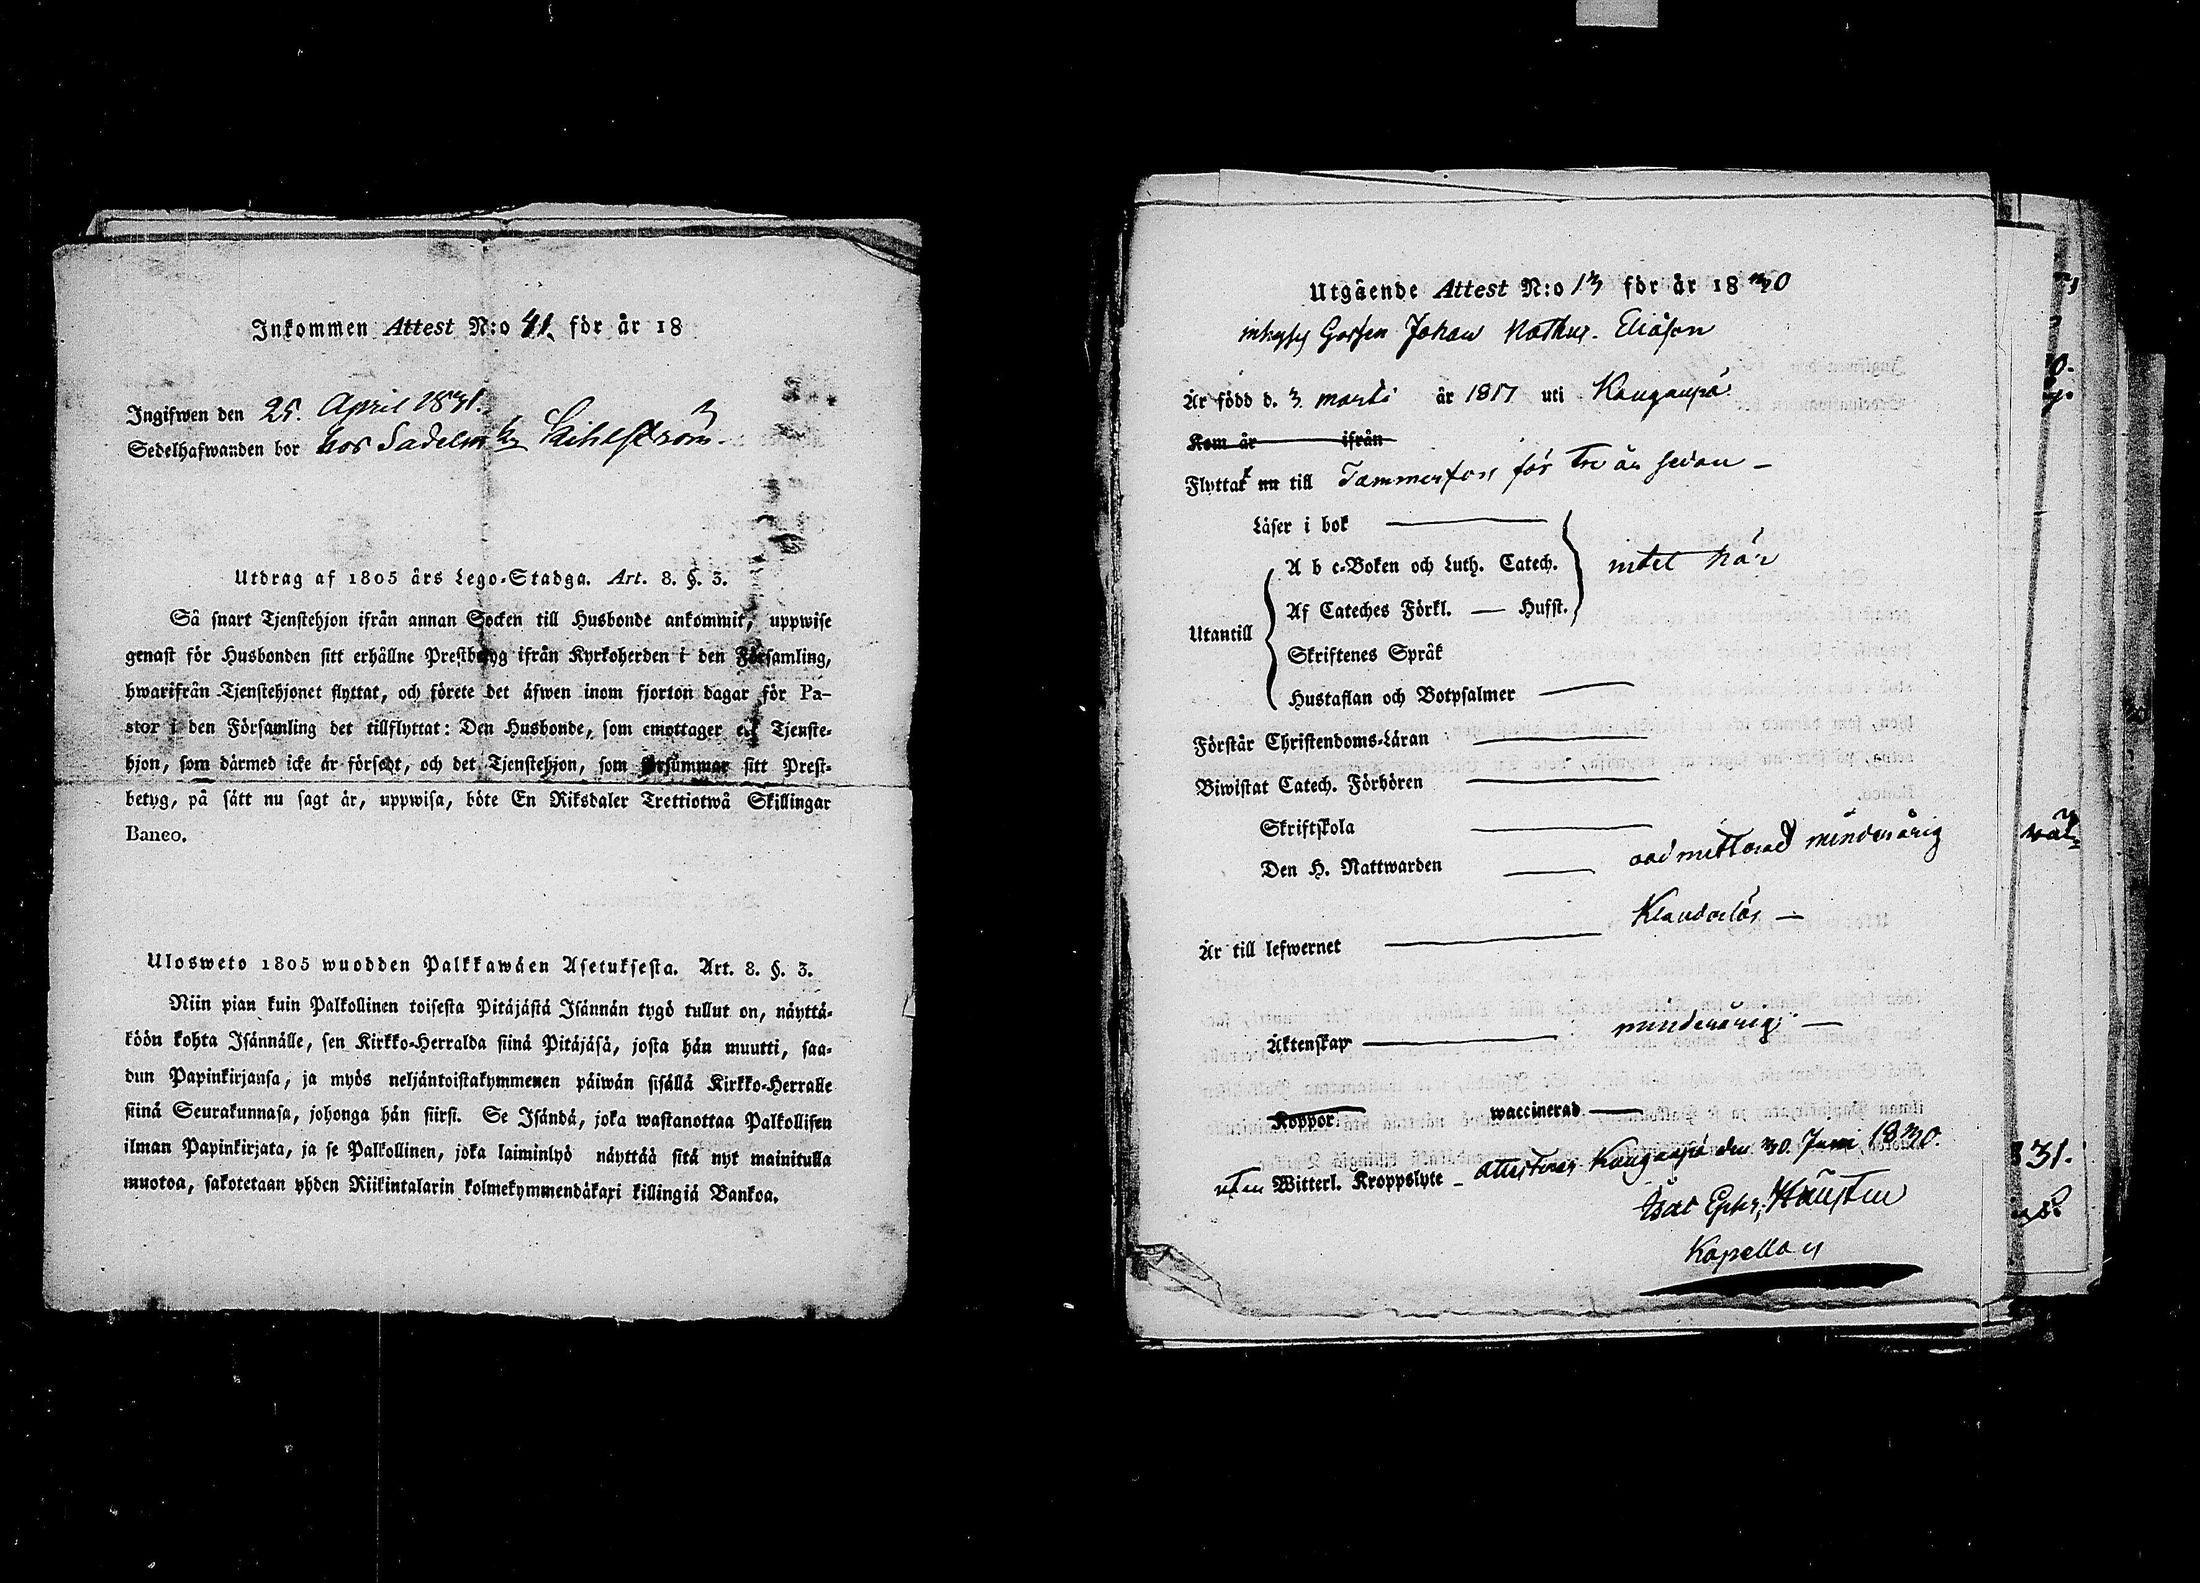 Inkommen Attest N:o 41. för år 18
Ingifwen den 25. April 1831.
Sedelhafwanden bor hos Sadelm
Utdrag af 1805 års Lego-Stadga. Art. 8. §. 3.
Så snart Tjenstehjon ifrån annan Socken till Husbonde ankommit, uppwise
genast för Husbonden sitt erhållne Prestbetyg ifrån Kyrkoherden i den Församling,
hwarifrån Tjenstehjonet flyttat, och förete det äfwen inom fjorton dagar för Pa-
stor i den Församling det tillflyttat: Den Husbonde, som emottager ett Tjenste-
hjon, som därmed icke är försedt, och det Tjenstehjon, som försummar sitt Prest-
betyg, på sätt nu sagt är, uppwisa, böte En Riksdaler Trettiotwå Skillingar
Banco.
Ulosweto 1805 wuodden Palkkawäen Asetuksesta. Art. 8. §. 3.
Niin pian kuin Palkollinen toisesta Pitäjästä Isännän tygö tullut on, näyttä-
köön kohta Isännälle, sen Kirkko-Herralda siinä Pitäjäsä, josta hän muutti, saa-
dun Papinkirjansa, ja myös neljäntoistakymmenen päiwän sisällä Kirkko-Herralle
siinä Seurakunnasa, johonga hän siirsi. Se Isändä, joka wastanottaa Palkollisen
ilman Papinkirjata, ja se Palkollinen, joka laiminlyö näyttää sitä nyt mainitulla
muotoa, sakotetaan yhden Riikintalarin kolmekymmendäkaxi killingiä Bankoa.
Utgående Attest N:o 13 för år 1830
inhyses Gossen Johan Mathus. Eliasson
Är född d. 3 marti år 1817 uti Kangasala
Kom år ifrån
Flyttat nu till Tammerfors för tre år sedan —
Läser i bok
A b c-Boken och Luth. Catech. intet här
Af Cateches Förkl. — Husst.
Utantill
Skriftenes Språk
Hustaflan och Botpsalmer
Förstår Christendoms-Läran
Biwistat Catech. Förhören
Skriftskola
Den H. Nattwarden oadmitterad minderårig
Är till lefwernet Klanderlös —
Äktenskap minderårig —
Koppor waccinerad
utan Witterl. Kroppslyte — attesteras Kangasala den 30. Juni 1830.
Kapellan
831.